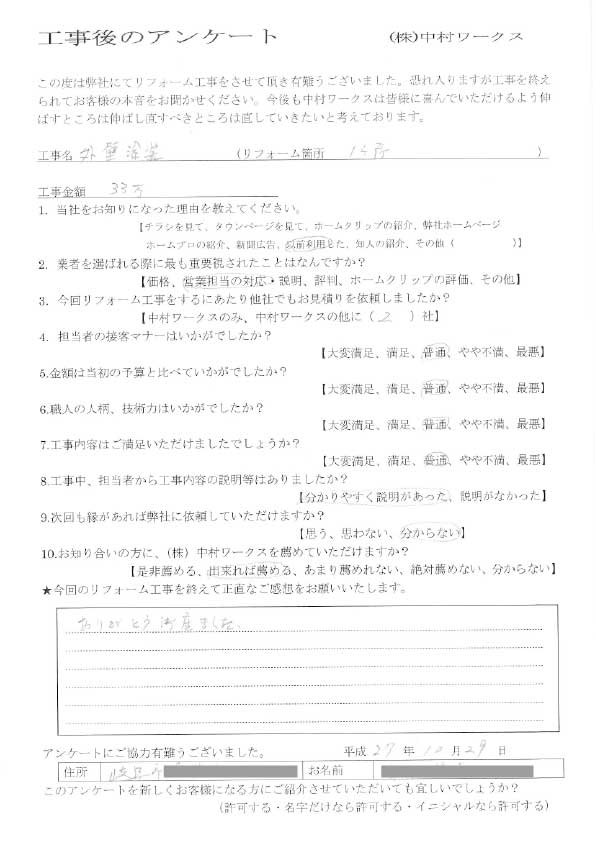 工事後のアンケート (株)中村ワークス
この度は弊社にてリフォーム工事をさせて頂き有難うございました。恐れ入りますが工事を終え
られてお客様の本音をお聞かせください。今後も中村ワークスは皆様に喜んでいただけるよう伸
ばすところは伸ばし直すべきところは直していきたいと考えております。
工事名 外壁塗装 (リフォーム箇所 1ヶ所 )
工事金額 33万
1. 当社をお知りになった理由を教えてください。
【チラシを見て、タウンページを見て、ホームクリップの紹介、弊社ホームページ
ホームプロの紹介、新聞広告、以前利用した、知人の紹介、その他( )】
2. 業者を選ばれる際に最も重要視されたことはなんですか?
【価格、営業担当の対応・説明、評判、ホームクリップの評価、その他】
3. 今回リフォーム工事をするにあたり他社でもお見積りを依頼しましたか?
【中村ワークスのみ、中村ワークスの他に( 2 )社】
4. 担当者の接客マナーはいかがでしたか?
【大変満足、満足、普通、やや不満、最悪】
5.金額は当初の予算と比べていかがでしたか?
【大変満足、満足、普通、やや不満、最悪】
6.職人の人柄、技術力はいかがでしたか?
【大変満足、満足、普通、やや不満、最悪】
7.工事内容はご満足いただけましたでしょうか?
【大変満足、満足、普通、やや不満、最悪】
8.工事中、担当者から工事内容の説明等はありましたか?
【分かりやすく説明があった、説明がなかった】
9.次回も縁があれば弊社に依頼していただけますか?
【思う、思わない、分からない】
10.お知り合いの方に、(株)中村ワークスを薦めていただけますか?
【是非薦める、出来れば薦める、あまり薦めれない、絶対薦めない、分からない】
★今回のリフォーム工事を終えて正直なご感想をお願いいたします。
ありがとう御座ました。
アンケートにご協力有難うございました。 平成 27 年 10 月 29 日
住所 岐阜市 お名前
このアンケートを新しくお客様になる方にご紹介させていただいても宜しいでしょうか?
(許可する・名字だけなら許可する・イニシャルなら許可する)